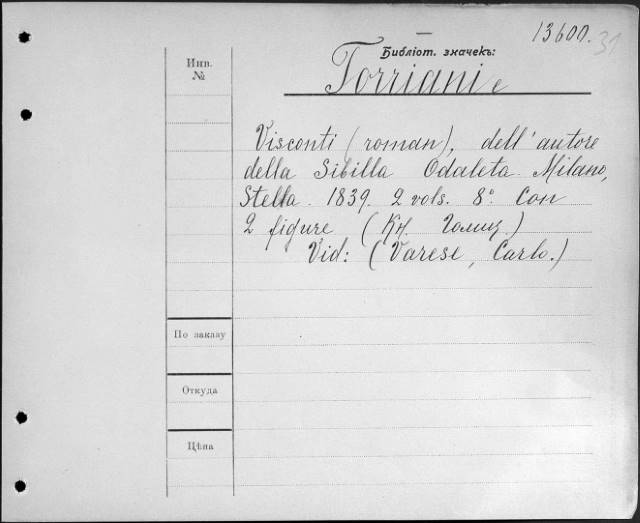 13600. 31
Библіот. значекъ:
Инв.
№
Torriani e
Visconti (roman), dell' autore
della Sibilla Odaleta. Milano,
Stella. 1839. 2 vols. 8º. Con
2 figure (Кн. Голиц.)
Vid: (Varese, Carlo.)
По заказу
Откуда
Цѣна